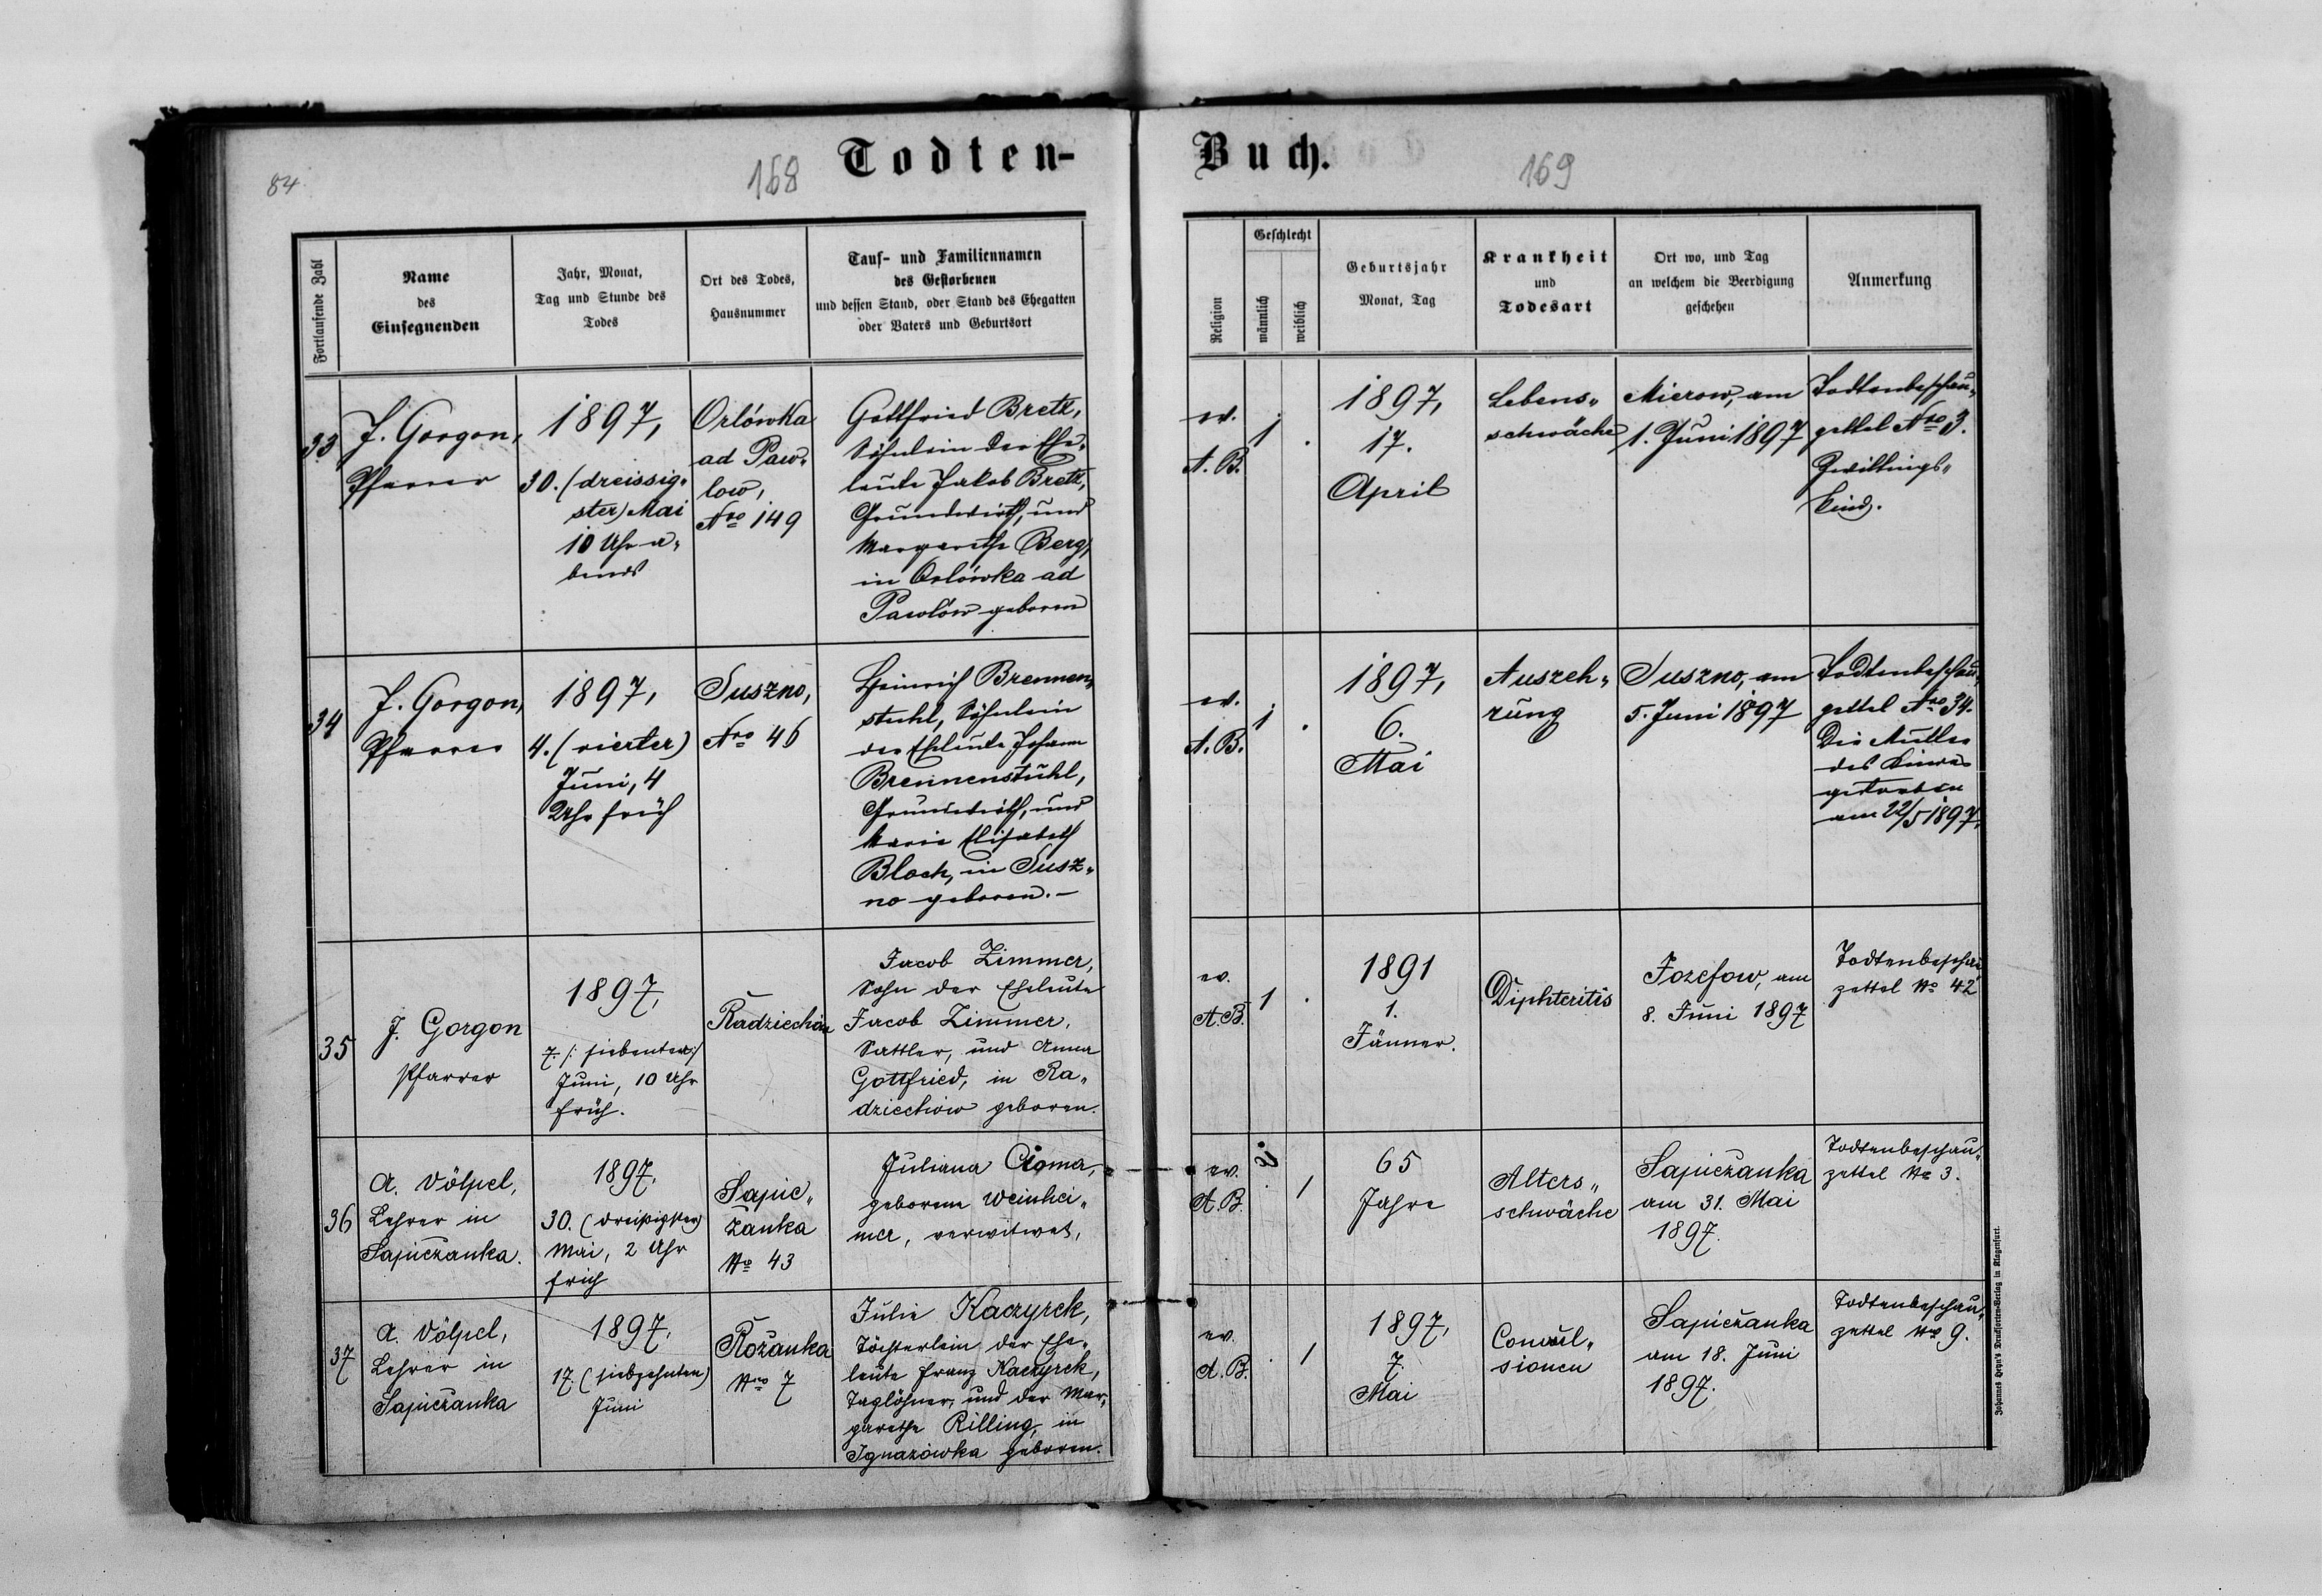 84
168
Todten-
Fortlaufende Zahl
Name
des
Einsegnenden
Jahr, Monat,
Tag und Stunde des
Todes
Ort des Todes,
Hausnummer
Tauf- und Familiennamen
des Gestorbenen
und dessen Stand, oder Stand des Ehegatten
oder Vaters und Geburtsort
33
J. Gorgon,
Pfarrer
1897,
30. (dreissig„
ster) Mai
10 Uhr a„
bends
Orlówka
ad Paw„
low,
Nro 149
Gottfried Bretz,
Söhnlein der Ehe„
leute Jakob Bretz,
Grundwirth, und
Margarethe Berg,
in Orlówka ad
Pawlów geboren
34
J. Gorgon,
Pfarrer
1897,
4. (vierter)
Juni, 4
Uhr früh
Suszno,
Nro 46
Heinrich Brennen„
stuhl, Söhnlein
der Eheleute Johann
Brennenstuhl,
Grundwirth, und
Marie Elisabeth
Bloch, in Susz„
no geboren. –
35
J. Gorgon
Pfarrer
1897,
7. /: siebenter :/
Juni, 10 Uhr
früh.
Radziechów
Jacob Zimmer,
Sohn der Eheleute
Jacob Zimmer,
Sattler, und Anna
Gottfried, in Ra„
dziechów geboren.
36
A. Völpel,
Lehrer in
Sapieżanka.
1897.
30. (dreißigster)
Mai, 2 Uhr
früh
Sapie„
żanka
No 43
Juliana Cioma,
geborene Weinhei„
mer, verwitwet,
37
A. Völpel,
Lehrer in
Sapieżanka
1897.
17. (siebzehnten)
Juni
Różanka
Nro 7
Julie Kaczyrek,
Töchterlein der Ehe„
leute Franz Kaczyrek,
Taglöhner, und der Mar„
garethe Rilling, in
Ignazówka geboren.
Buch.
169
Religion
Geschlecht
männlich
weiblich
Geburtsjahr
Monat, Tag
Krankheit
und
Todesart
Ort wo, und Tag
an welchem die Beerdigung
geschehen
Anmerkung
ev.
A. B.
1
.
1897,
17.
April
Lebens„
schwäche
Mierow, am
1. Juni 1897
Todtenbeschau„
zettel Nro 3.
Zwillings„
kind.
ev.
A. B.
1
.
1897,
6.
Mai
Auszeh„
rung
Suszno, am
5. Juni 1897
Todtenbeschau„
zettel Nro 34.
Die Mutter
des Kindes
gestorben
am 22/5 1897.
ev.
A. B.
1
.
1891
1.
Jänner.
Diphteritis
Jozefow, am
8. Juni 1897
Todtenbeschau
zettel No 42
ev.
A. B.
.
1
65
Jahre
Alters„
schwäche
Sapieżanka
am 31. Mai
1897.
Todtenbeschau„
zettel No 3.
ev.
A. B.
.
1
1897,
7.
Mai
Convul„
sionen
Sapieżanka
am 18. Juni
1897.
Todtenbeschau„
zettel No 9.
Johannes Heyn's Drucksorten-Verlag in Klagenfurt.